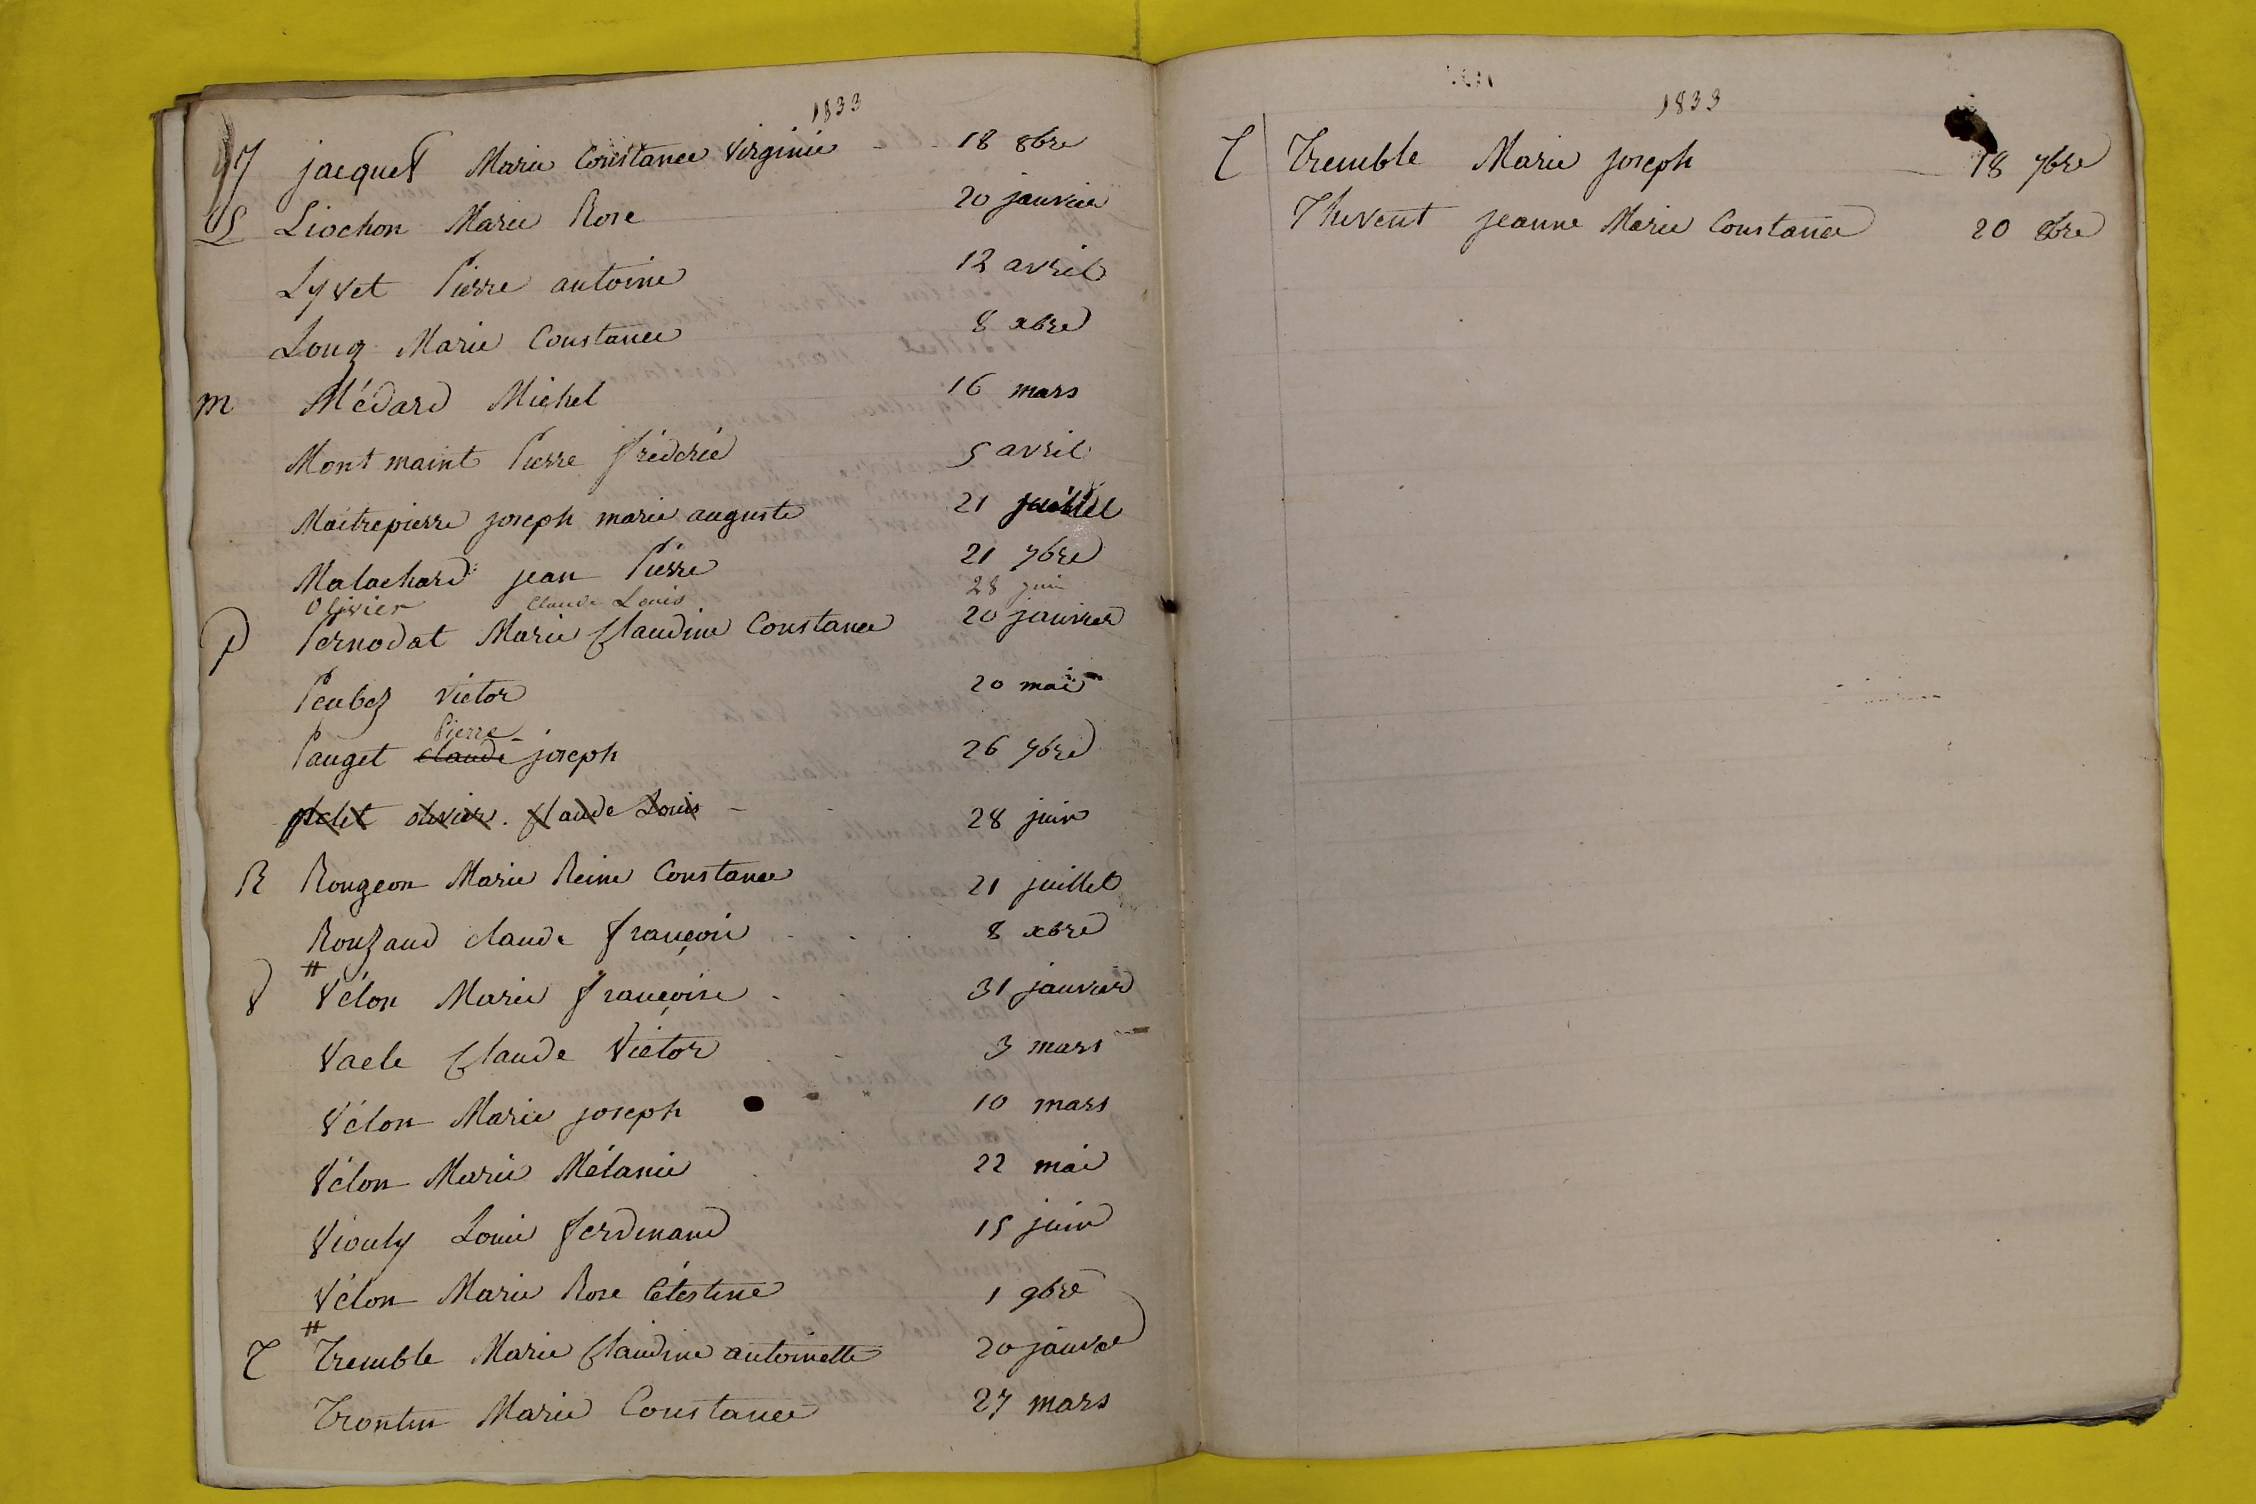 1833
J jacquet Marie Constance Virginie 18 8bre
L Liochon Marie Rose 20 janvier
Lyvet Pierre antoine 12 avril
Long Marie Constance 8 xbre
m Médard Michel 16 mars
Montmaint Pierre fréderic 5 avril
Maitrepierre joseph marie auguste 21 juillet
Malachard jean Pierre 21 7bre
Olivier Claude Louis 28 juin
P Pernodat Marie Claudine Constance 20 janvier
Peubez victor 20 mai
Pierre
Pauget claude joseph 26 7bre
petit olivier. Claude Louis 28 juin
R Rougeon Marie Reine Constance 21 juillet
Rouzaud claude françois 8 xbre
V Vélon Marie françoise 31 janvier
Vacle Claude Victor 3 mars
Vélon Marie joseph 10 mars
Vélon Marie Mélanie 22 mai
Viouly Louis ferdinand 15 juin
Vélon Marie Rose Célestine 1 9bre
T Tremble Marie Claudine antoinette 20 janvier
Trontin Marie Constance 27 mars
1833
T Tremble Marie joseph 18 7bre
Thevent jeanne Marie Constance 20 8bre